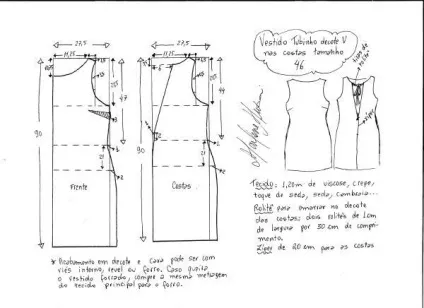 Vestido Tubinho decote V
nas costas tamanho
46
27,5
11,25
27,5
11,25
47
44
90
90
Frente
Costas
zíper
Tecido: 1,20m de viscose, crepe,
toque de seda, seda, cambraia...
Rolitê para amarrar no decote
das costas: dois rolitês de 1cm
de largura por 50 cm de compri-
mento.
Zíper de 40 cm para as costas
* Acabamento em decote e cava pode ser com
viés interno, revel ou forro. Caso queira
o vestido forrado, compre a mesma metragem
do tecido principal para o forro.